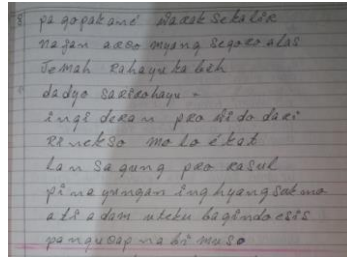 pagopakané warak sekalir
najan arso myang segoro alas
temah rahayu kabeh
dadyo sarirohayu -
ingideran pro hidodari
Rinekso molo ékat
lan sagung pro rasul
pinayungan ing hyang sukmo
ati adam uteku bagindo esis
pangucap nabi muso